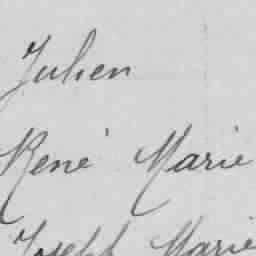 Julien
René Marie
Joseph Marie